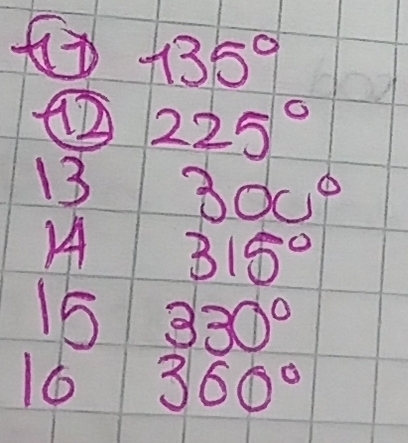 11 135°
12 225°
13 300°
14 315°
15 330°
16 360°